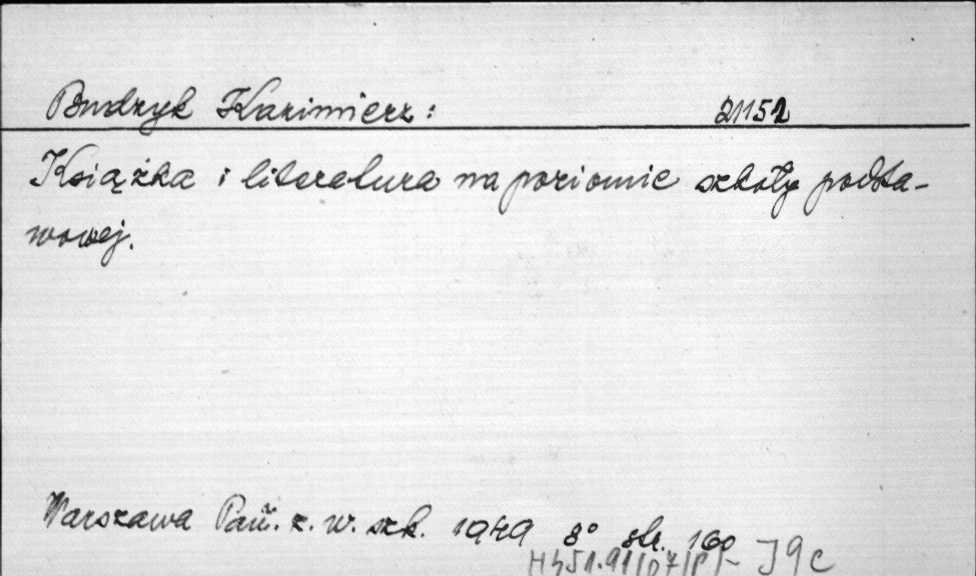 Budzyk Kazimierz: 21152
Książka i literatura na poziomie szkoły podsta-
wowej.
Warszawa Pań. z. w. szk. 1949 8° str. 160
J9c